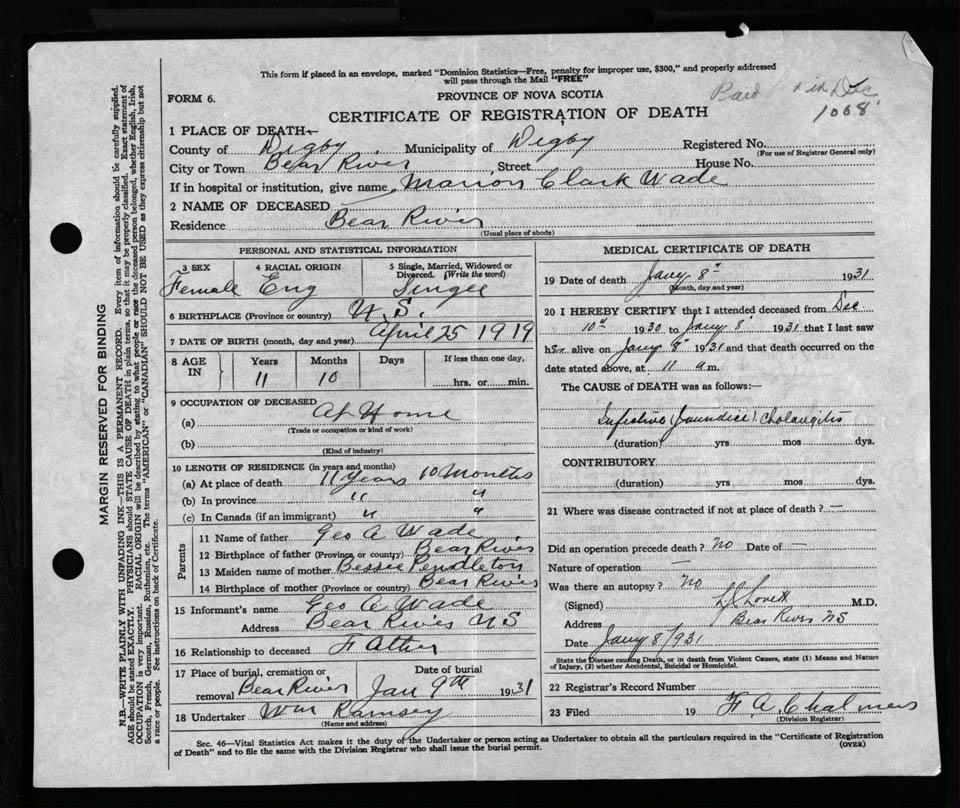 This form if placed in an envelope, marked "Dominion Statistics—Free, penalty for improper use, $300," and properly addressed
will pass through the Mail "FREE"
FORM 6.
PROVINCE OF NOVA SCOTIA
Paid in Dec
1068
CERTIFICATE OF REGISTRATION OF DEATH
1 PLACE OF DEATH—
County of Digby, Municipality of Digby Registered No.
(For use of Registrar General only)
City or Town Bear River, Street House No.
If in hospital or institution, give name Marion Clark Wade
2 NAME OF DECEASED
Residence Bear River
(Usual place of abode)
PERSONAL AND STATISTICAL INFORMATION
3 SEX 4 RACIAL ORIGIN 5 Single, Married, Widowed or Divorced. (Write the word)
Female Eng Single
6 BIRTHPLACE (Province or country) N.S.
7 DATE OF BIRTH (month, day and year) April 25 1919
8 AGE IN Years Months Days If less than one day,
11 10 hrs. or min.
9 OCCUPATION OF DECEASED
(a) At Home
(Trade or occupation or kind of work)
(b)
(Kind of industry)
10 LENGTH OF RESIDENCE (in years and months)
(a) At place of death 11 Years 10 Months
(b) In province " "
(c) In Canada (if an immigrant) " "
Parents
11 Name of father Geo A Wade
12 Birthplace of father (Province or country) Bear River
13 Maiden name of mother Bessie Pendleton
14 Birthplace of mother (Province or country) Bear River
15 Informant's name Geo A Wade
Address Bear River NS
16 Relationship to deceased Father
17 Place of burial, cremation or removal Bear River Date of burial Jan 9th 1931
18 Undertaker Wm Ramsey
(Name and address)
MEDICAL CERTIFICATE OF DEATH
19 Date of death Jany 8" 1931
(Month, day and year)
20 I HEREBY CERTIFY that I attended deceased from Dec
10" 1930 to Jany 8" 1931 that I last saw
her alive on Jany 8" 1931 and that death occurred on the
date stated above, at 11 a m.
The CAUSE of DEATH was as follows:—
Infective (Jaundice) Cholangitis
(duration) yrs mos dys.
CONTRIBUTORY
(duration) yrs mos dys.
21 Where was disease contracted if not at place of death? —
Did an operation precede death? no Date of —
Nature of operation —
Was there an autopsy? no
(Signed) Lovett M.D.
Address Bear River NS
Date Jany 8/931
State the Disease causing Death, or in death from Violent Causes, state (1) Means and Nature
of Injury, (2) whether Accidental, Suicidal or Homicidal.
22 Registrar's Record Number
23 Filed 19 F A Chalmers
(Division Registrar)
Sec. 46—Vital Statistics Act makes it the duty of the Undertaker or person acting as Undertaker to obtain all the particulars required in the "Certificate of Registration
of Death" and to file the same with the Division Registrar who shall issue the burial permit. (OVER)
MARGIN RESERVED FOR BINDING
N.B.—WRITE PLAINLY WITH UNFADING INK—THIS IS A PERMANENT RECORD. Every item of information should be carefully supplied.
AGE should be stated EXACTLY. PHYSICIANS should STATE CAUSE OF DEATH in plain terms, so that it may be properly classified. Exact statement of
OCCUPATION is very important. RACIAL ORIGIN will be described by stating to what people or race the deceased person belonged, whether English, Irish,
Scotch, French, German, Russian, Ruthenian, etc. The terms "AMERICAN" or "CANADIAN" SHOULD NOT BE USED as they express citizenship but not
a race or people. See instructions on back of Certificate.